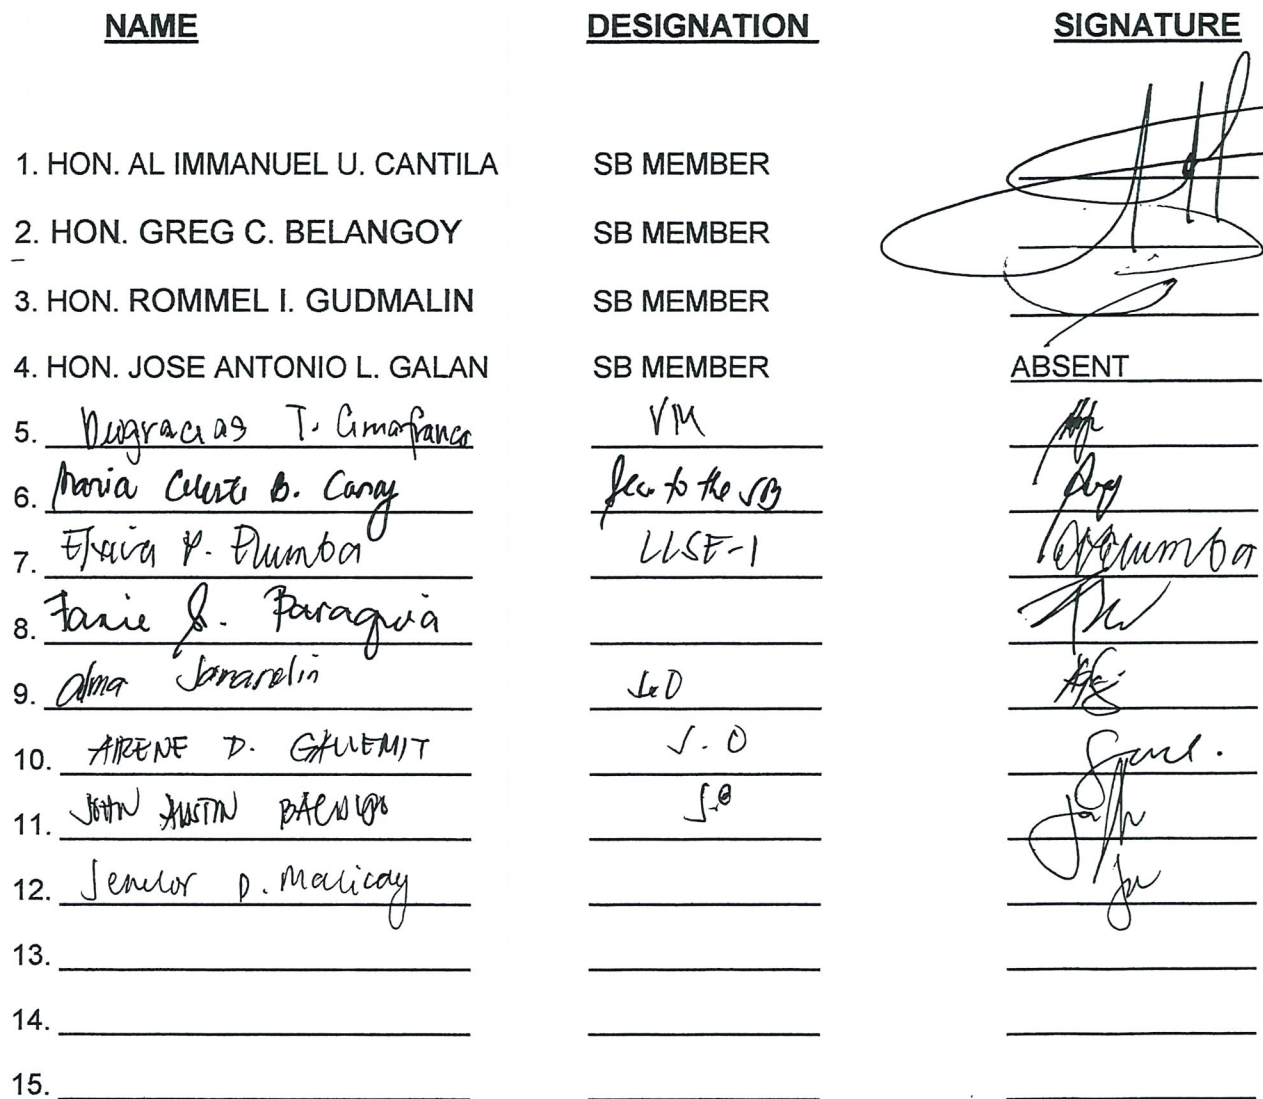 NAME DESIGNATION SIGNATURE
1. HON. AL IMMANUEL U. CANTILA SB MEMBER
2. HON. GREG C. BELANGOY SB MEMBER
3. HON. ROMMEL I. GUDMALIN SB MEMBER
4. HON. JOSE ANTONIO L. GALAN SB MEMBER ABSENT
5. Deogracias T. Cimafranca VM
6. Maria Celeste B. Canoy Sec to the SB
7. P. Elumba LLSE-1
8. Fanie S. Paraguia
9. Alma J.O
10. ARENE D. GALLEMIT J.O
11. JOHN AUSTIN J.O
12. D. Malicay
13.
14.
15.